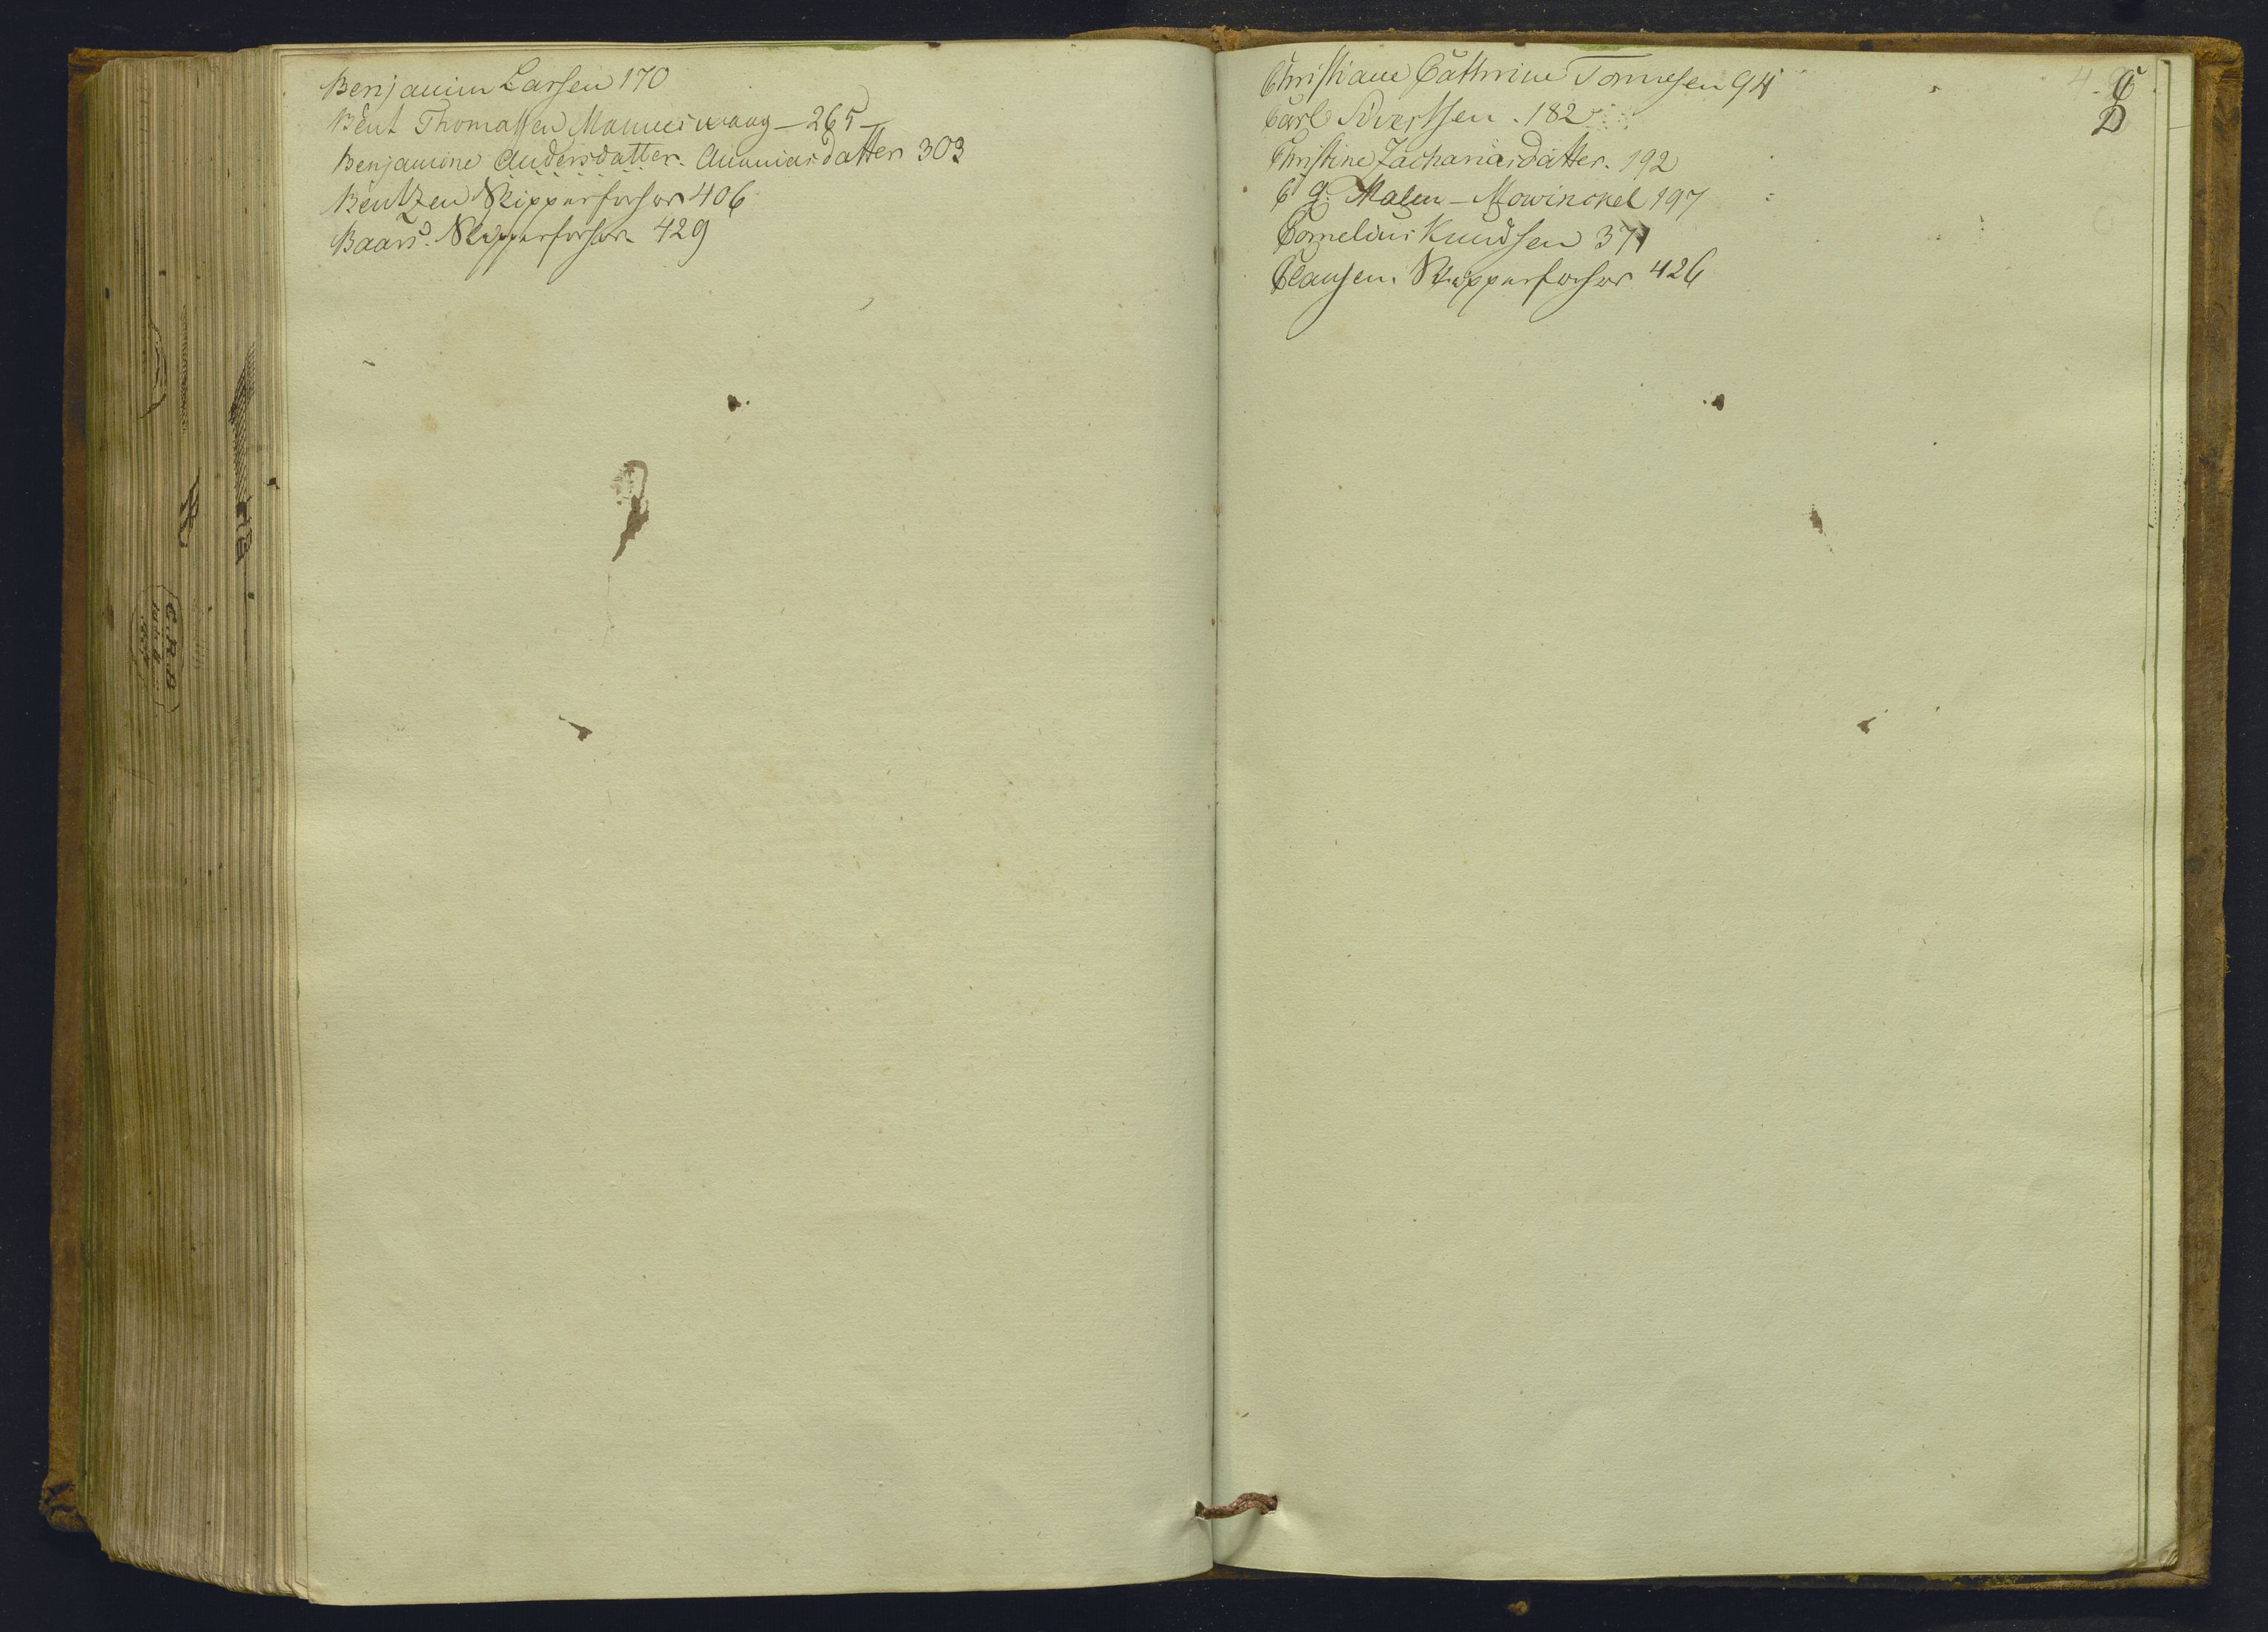 Benjamin Larsen 170
Bent Thomassen Mannes waag - 265 -
Benjamine Andersdatter. Ananiasdatter 303
Bentzen Skipperforhør 406
Baars. Skipperforhør 429
Christiane Cathrine Tønnesen 94
Carl Sivertsen. 182
Christine Zachariasdatter. 192
C g. Malen - Mowinckel 197
Cornelius Knudsen 371
Clausen. Skipperforhør 426
C
D